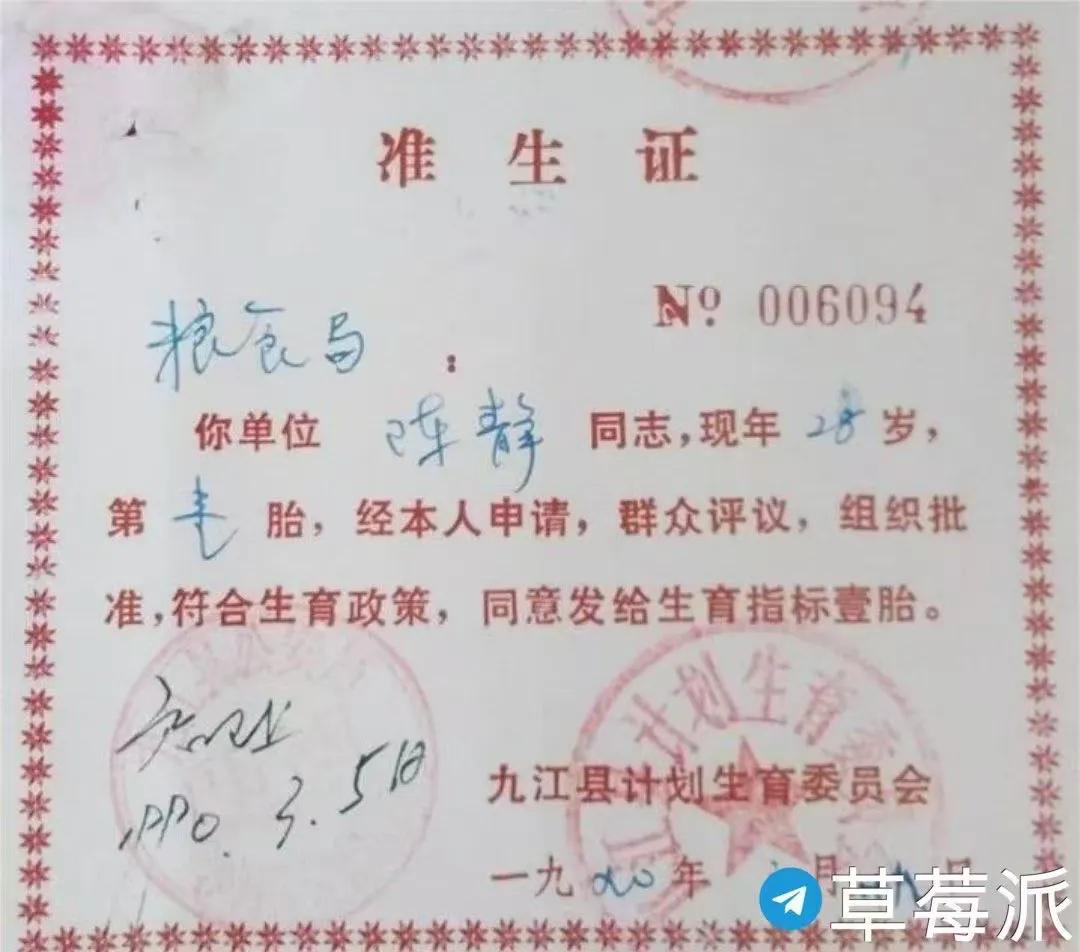 准生证
№ 006094
粮食局：
你单位 陈静 同志，现年 28 岁，
第 壹 胎，经本人申请，群众评议，组织批
准，符合生育政策，同意发给生育指标壹胎。
计划生育委
1990. 3. 5日
九江县计划生育委员会
一九 年 月 日
草莓派